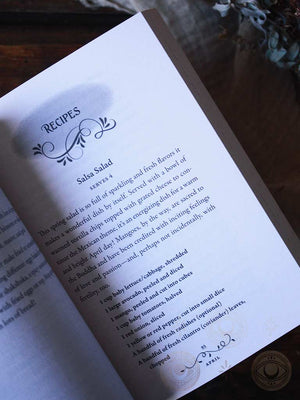 RECIPES
Salsa Salad
SERVES 4
This spring salad is so full of sparkling and fresh flavors it
makes a wonderful dish by itself. Served with a bowl of
warmed tortilla chips topped with grated cheese to con-
tinue the Mexican theme, it's an energizing dish for a warm
and bright April day! Mangoes, by the way, are sacred to
the Buddha and have been credited with inciting feelings
of love and passion—and, perhaps not incidentally, with
fertility too.
1 cup baby lettuce/cabbage, shredded
1 large avocado, peeled and sliced
1 mango, peeled and cut into cubes
1 cup baby tomatoes, halved
1 red onion, sliced
1 yellow or red pepper, cut into small dice
A handful of fresh radishes (optional)
A handful of fresh cilantro (coriander) leaves,
chopped
APRIL